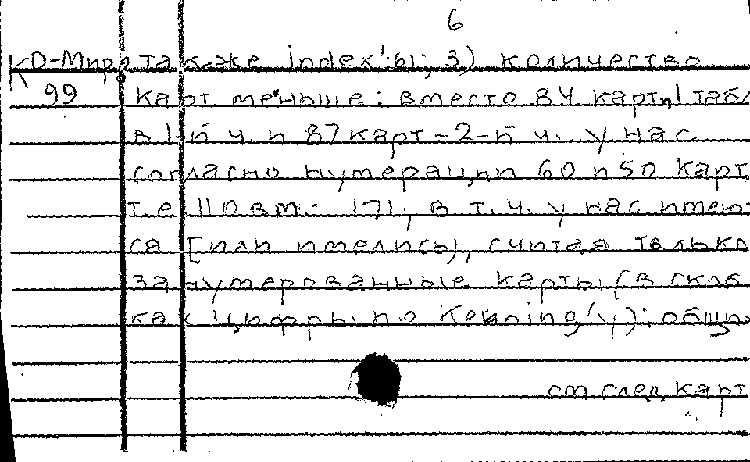 6
КО-Мира также index'ы; 3) количество
99 карт меньше: вместо 84 карт, 1 табл
в 1-й ч и 87 карт - 2-й ч. у нас
согласно нумерации 60 и 50 карт
т.е. 110 вм. 171, в т.ч. у нас имеют
ся [или имелись], считая только
занумерованные карты (в скоб
ках цифры по Keuning'у): общи
см след карт